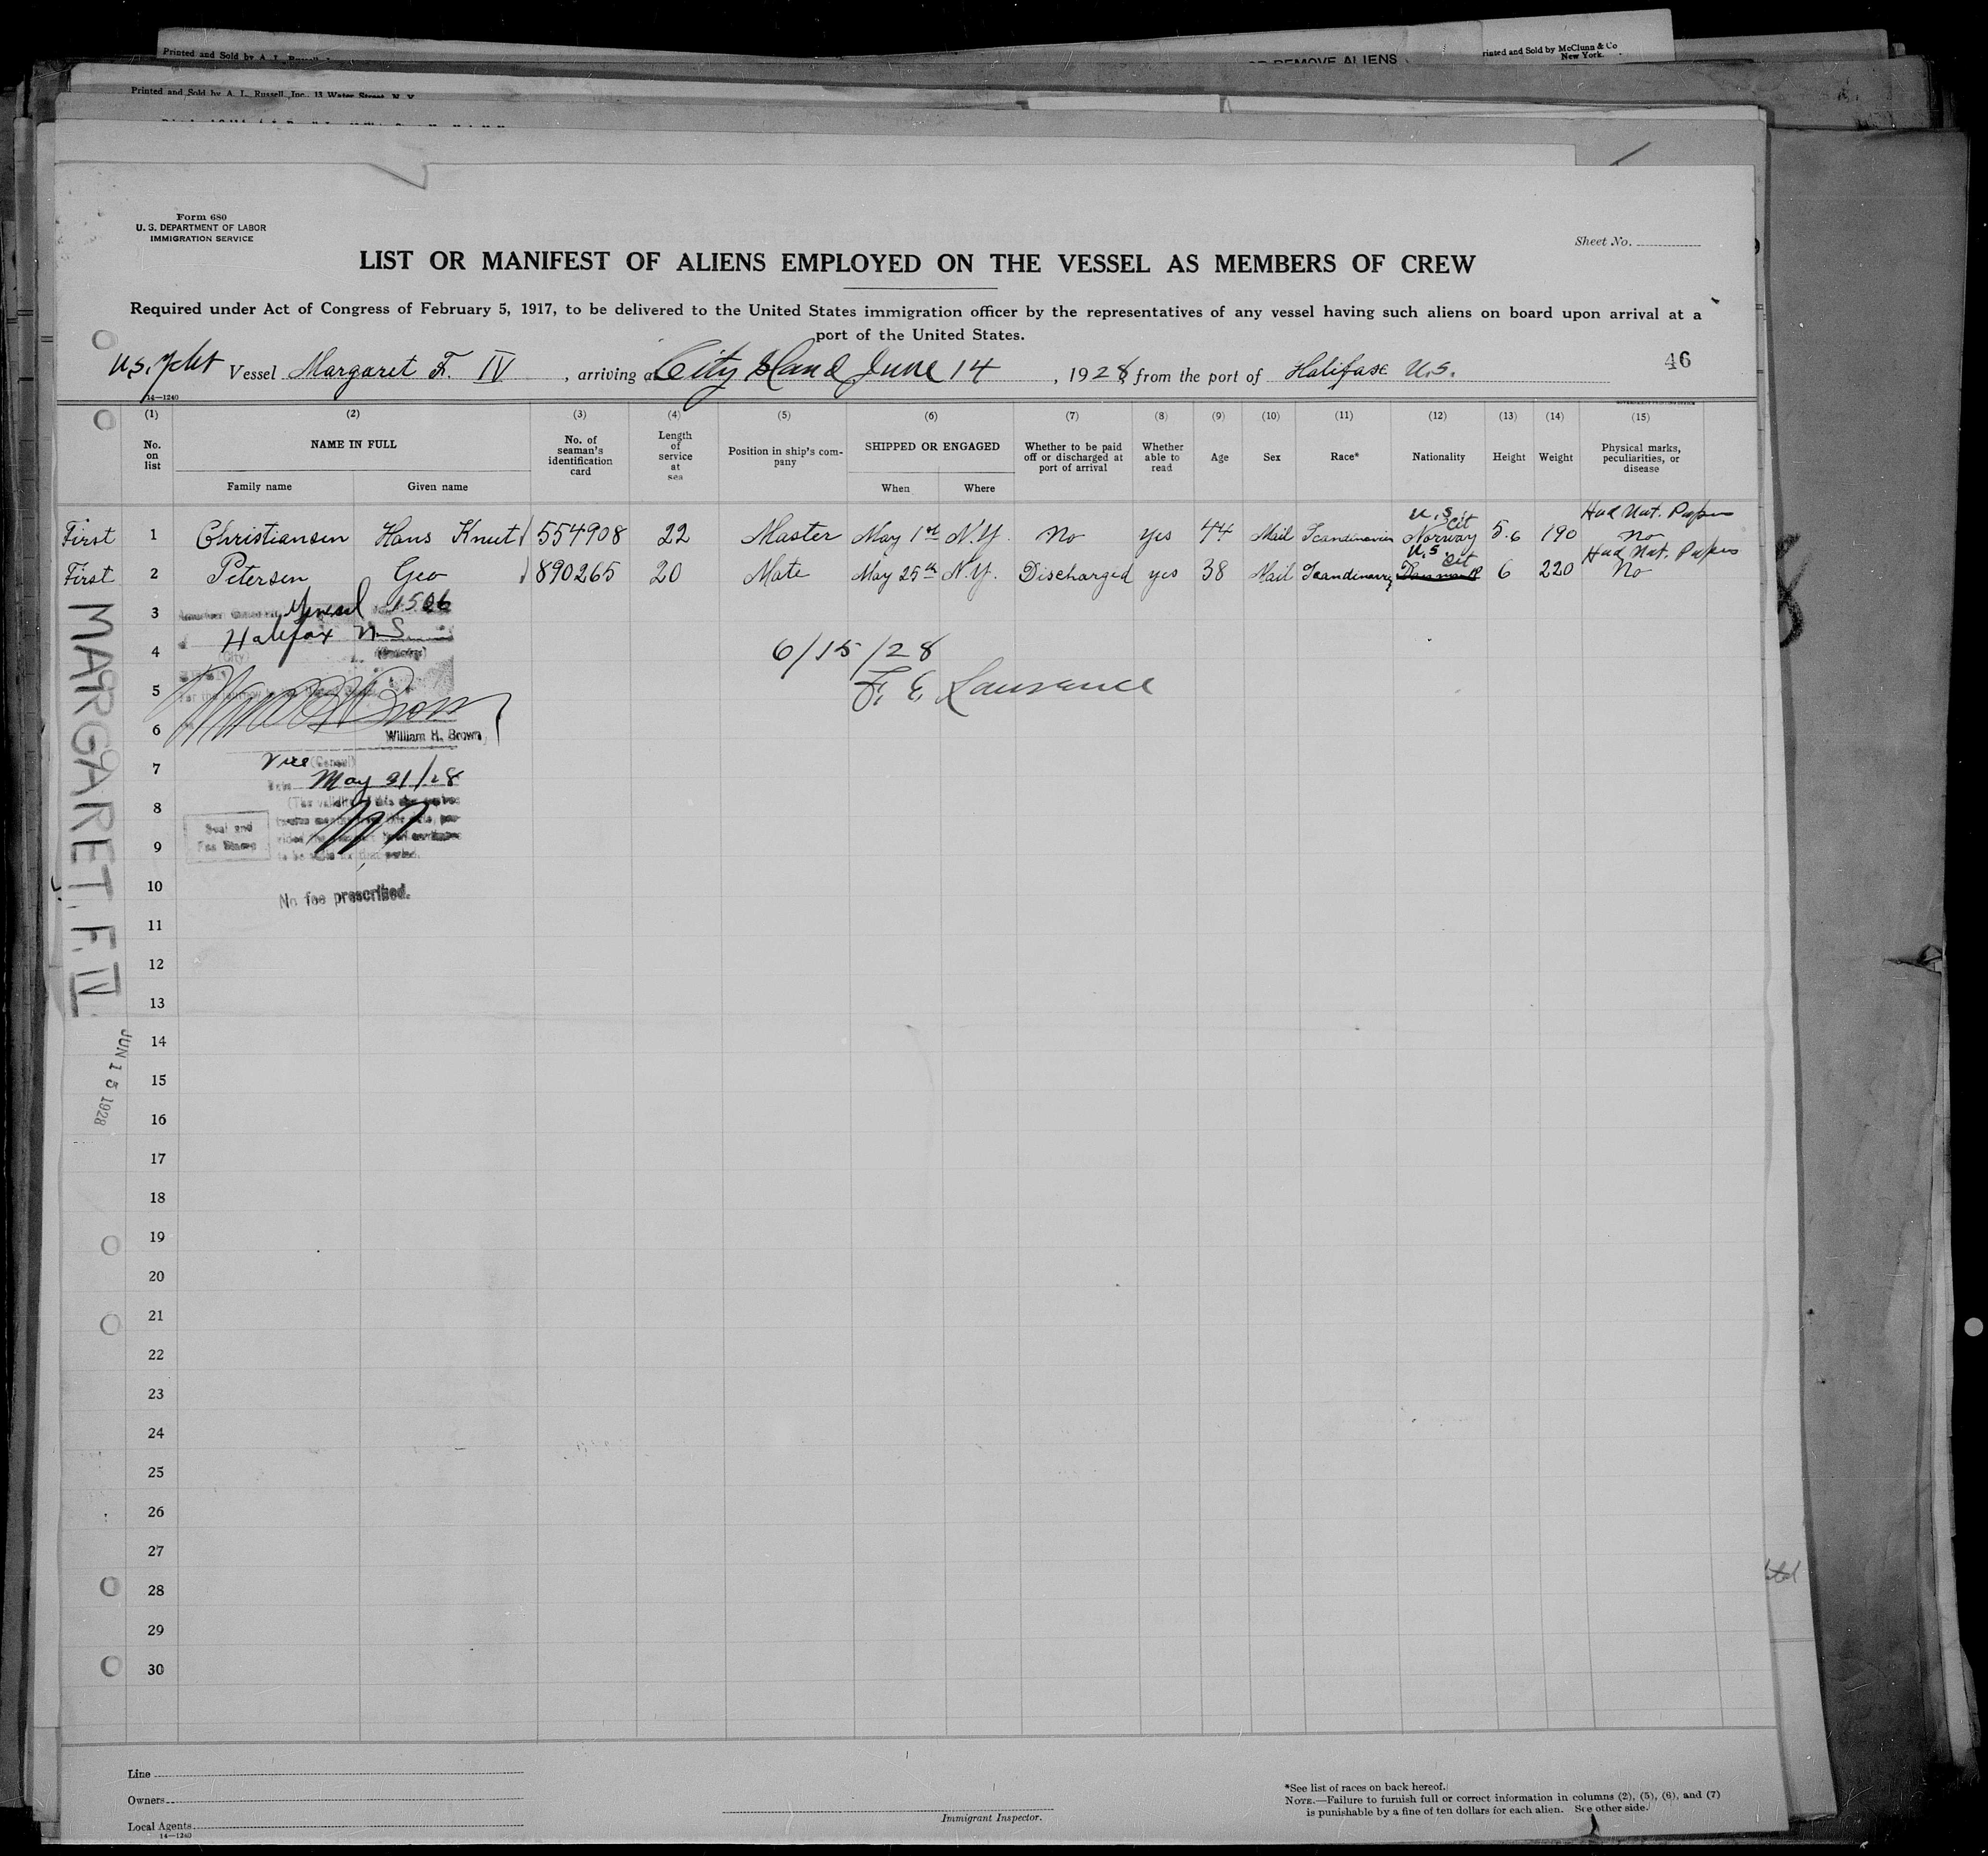 Printed and Sold by A. L. Russell
OR REMOVE ALIENS
Printed and Sold by McClunn & Co
New York.
Printed and Sold by A. L. Russell, Inc., 13 Water Street, N. Y.
Form 680
U. S. DEPARTMENT OF LABOR
IMMIGRATION SERVICE
Sheet No.
LIST OR MANIFEST OF ALIENS EMPLOYED ON THE VESSEL AS MEMBERS OF CREW
Required under Act of Congress of February 5, 1917, to be delivered to the United States immigration officer by the representatives of any vessel having such aliens on board upon arrival at a
port of the United States.
46
U.S. Vessel Margaret F. IV, arriving at City Island June 14, 1928, from the port of Halifax
14—1240
(1) (2) (3) (4) (5) (6) (7) (8) (9) (10) (11) (12) (13) (14) (15)
No. on list
NAME IN FULL
Family name
Given name
No. of seaman's identification card
Length of service at sea
Position in ship's company
SHIPPED OR ENGAGED
When
Where
Whether to be paid off or discharged at port of arrival
Whether able to read
Age
Sex
Race*
Nationality
Height
Weight
Physical marks, peculiarities, or disease
U.S. Cit Had Nat. Papers
First 1 Christiansen Hans Knut 554908 22 Master May 1st N.Y. No yes 44 Mail Scandinavien Norway 5.6 190 No
U.S. Cit Had Nat. Papers
First 2 Petersen Geo 890265 20 Mate May 25th N.Y. Discharged yes 38 Mail Danmark 6 220 No
3
Halifax N.S.
4
(City)
(Country)
6/15/28
5
F. E. Lawrence
6
William H. Brown
7 Vice (Consul)
May 31/28
8
Seal and
Fee Stamp
9
10
No fee prescribed.
11
12
13
14
15
16
17
18
19
20
21
22
23
24
25
26
27
28
29
30
MARGARET. F. IV
JUN 15 1928
Line
Owners
Local Agents
14—1240
Immigrant Inspector.
*See list of races on back hereof.
NOTE.—Failure to furnish full or correct information in columns (2), (5), (6), and (7)
is punishable by a fine of ten dollars for each alien. See other side.